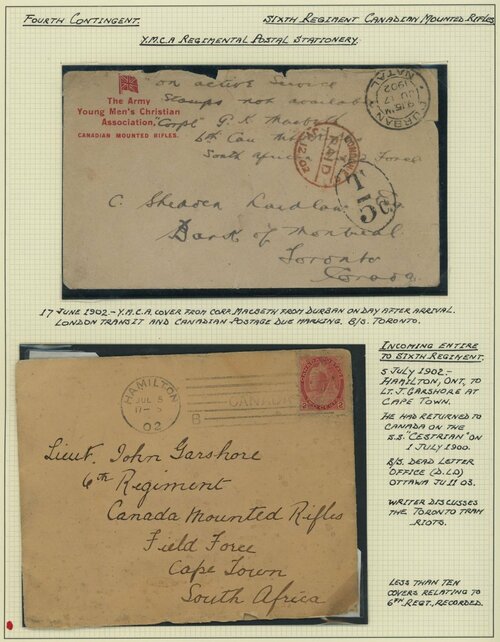 FOURTH CONTINGENT. SIXTH REGIMENT CANADIAN MOUNTED RIFLES
Y.M.C.A REGIMENTAL POSTAL STATIONERY.
"on active service
Stamps not available
The Army
Young Men's Christian
Association,
CANADIAN MOUNTED RIFLES.
"Corpl" G. K. Macbeth
6th Can
South Africa Force
DURBAN
9.15 PM
JU 17
1902
NATAL
LONDON
PAID
JY 12 02
T
5c
C. Shedden Laidlaw Esq
Bank of Montreal
Toronto
Canada
17 JUNE 1902 - Y.M.C.A COVER FROM CORP. MACBETH FROM DURBAN ON DAY AFTER ARRIVAL.
LONDON TRANSIT AND CANADIAN POSTAGE DUE MARKING. B/S. TORONTO.
INCOMING ENTIRE
TO SIXTH REGIMENT.
5 JULY 1902 -
HAMILTON, ONT, TO
LT. J. GARSHORE AT
CAPE TOWN.
HE HAD RETURNED TO
CANADA ON THE
S.S. "CESTRIAN" ON
1 JULY 1900.
B/S. DEAD LETTER
OFFICE (D.L.O)
OTTAWA JU 11 03.
WRITER DISCUSSES
THE TORONTO TRAM
RIOTS.
LESS THAN TEN
COVERS RELATING TO
6TH REGT. RECORDED.
HAMILTON
JUL 5
17-5
02
CANADA
B
Lieut. John Garshore
6th Regiment
Canada Mounted Rifles
Field Force
Cape Town
South Africa